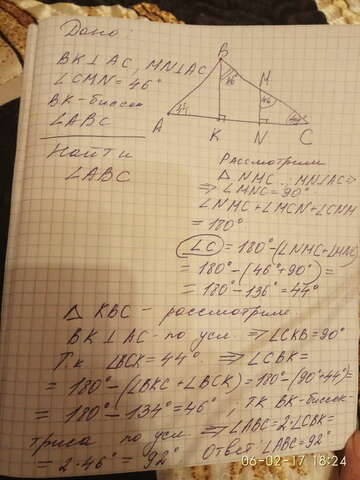 Дано:
BK⊥AC, MN⊥AC
∠CMN = 46°
BK - биссек
∠ABC
Найти
∠ABC
B
46°
M
46°
A
44
44
K
N
C
Рассмотрим
△ NMC : MN⊥AC ⇒
⇒ ∠MNC = 90°
∠NMC + ∠MCN + ∠CNM
= 180°
∠C = 180° - (∠NMC +
= 180° - (46° + 90°) =
= 180° - 136° = 44°
△ KBC - рассмотрим
BK ⊥ AC - по усл. ⇒ ∠CKB = 90°
Т.к ∠BCK = 44° ⇒ ∠CBK =
= 180° - (∠BKC + ∠BCK) = 180° - (90° + 44°) =
= 180° - 134° = 46°, тк BK - биссек-
триса по усл. ⇒ ∠ABC = 2·∠CBK =
= 2·46° = 92°. Ответ: ∠ABC = 92°
06-02-17 18:24